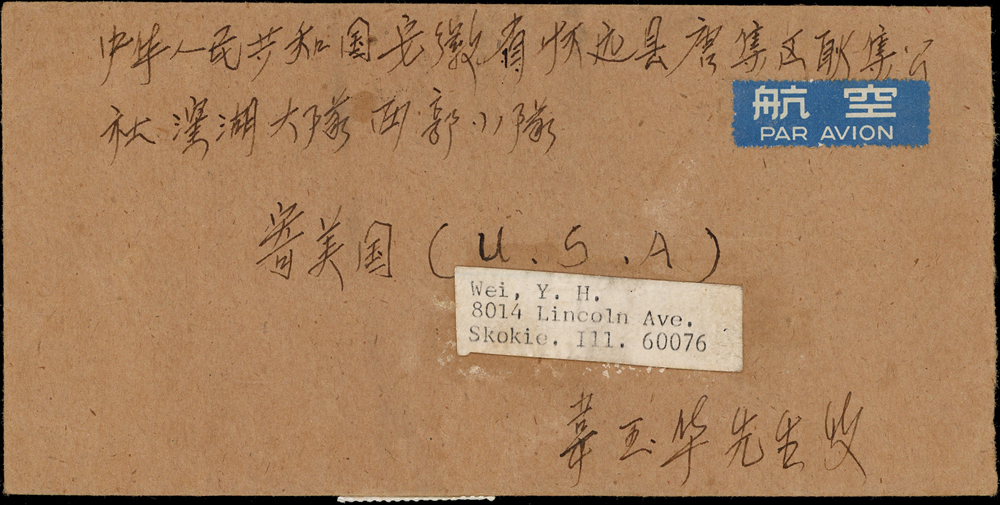 中华人民共和国安徽省怀远县唐集区耿集公
社湖大队西郭小队
航空
PAR AVION
寄美国(U.S.A)
Wei, Y. H.
8014 Lincoln Ave.
Skokie. Ill. 60076
韋玉华先生收